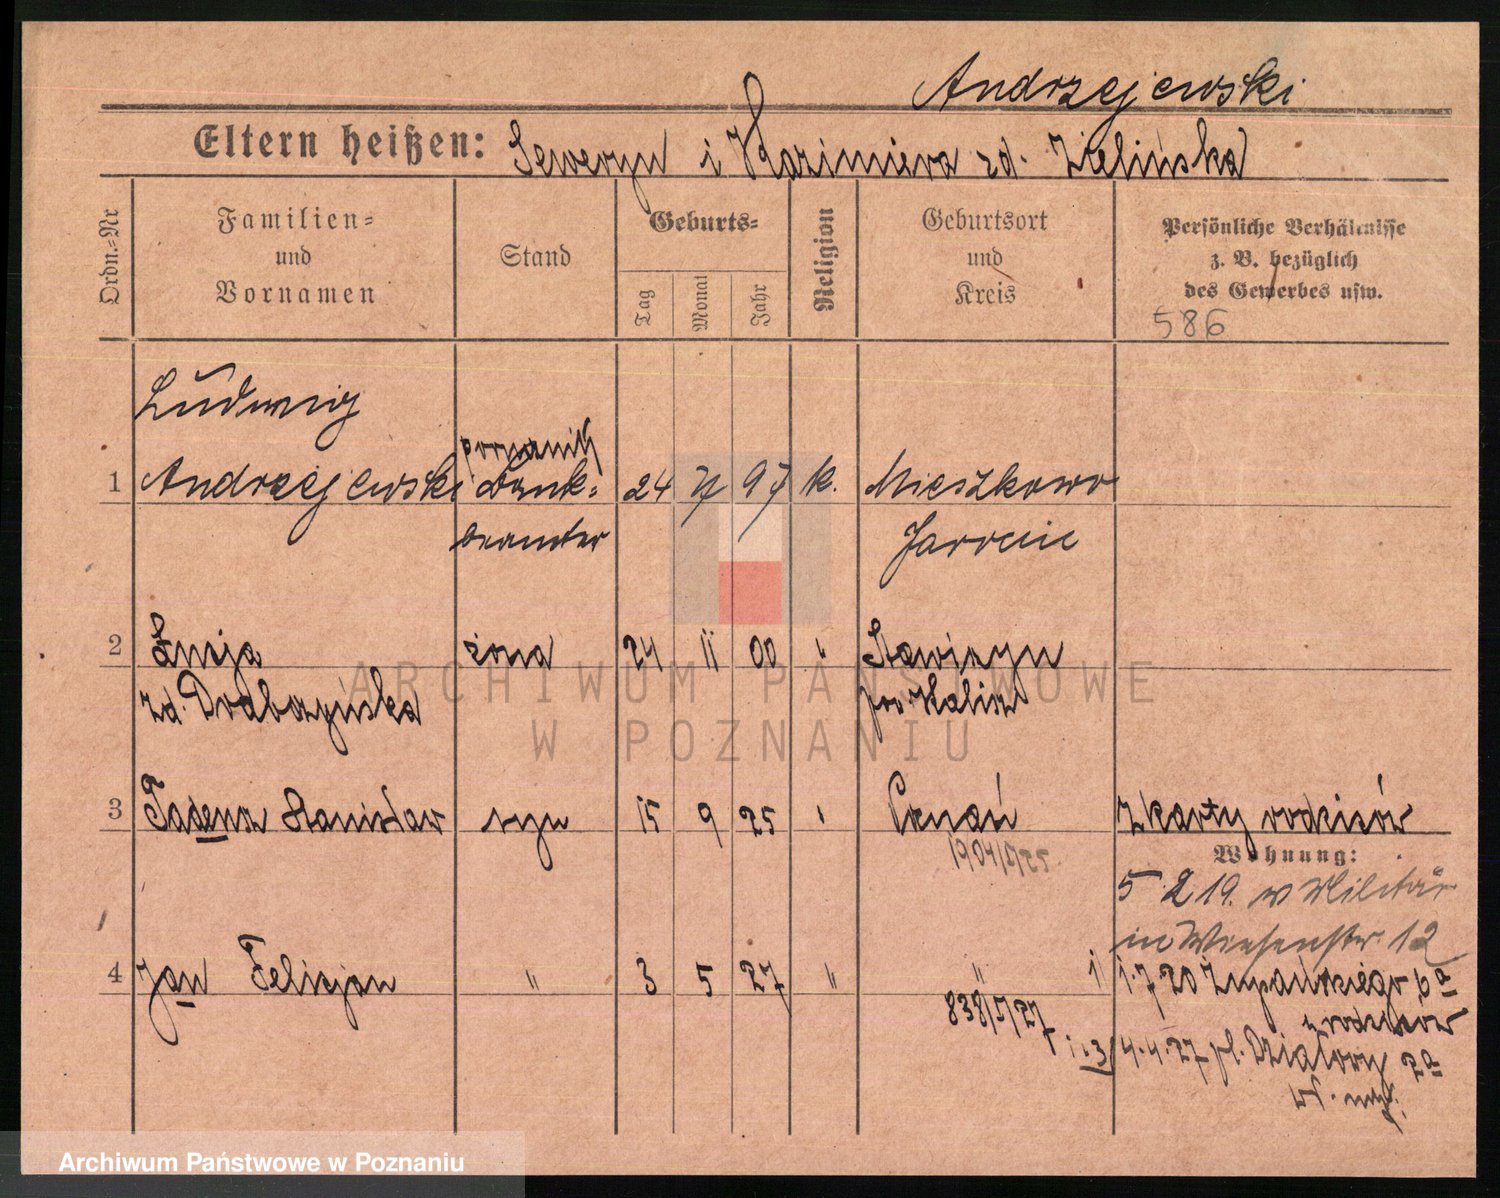 Andrzejewski
Eltern heißen: Seweryn i Kazimiera zd. Zielińska
Ordn.=Nr
Familien=
und
Vornamen
Stand
Geburts=
Tag
Monat
Jahr
Religion
Geburtsort
und
Kreis
Persönliche Verhältnisse
z. B. bezüglich
des Gewerbes usw.
586
Ludwig
1 Andrzejewski Bank= 24 7 97 k. Mieszkowo
beamter Jarocin
2 Łucja żona 24 11 00 " Stawiszyn
zd. Drabczyńska pow. Kalisz
3 Tadeusz Stanisław syn 15 9 25 " Poznań z karty rodziców
Wohnung:
5 2 19. v Militär
in Wiesenstr. 12
4 Jan Felicjan " 3 5 27 " " 1.7.20 Żupańskiego 6a
838/V/27 z rodziców
4.4.27 pl. Działowy 2a
Archiwum Państwowe
w Poznaniu
Archiwum Państwowe w Poznaniu